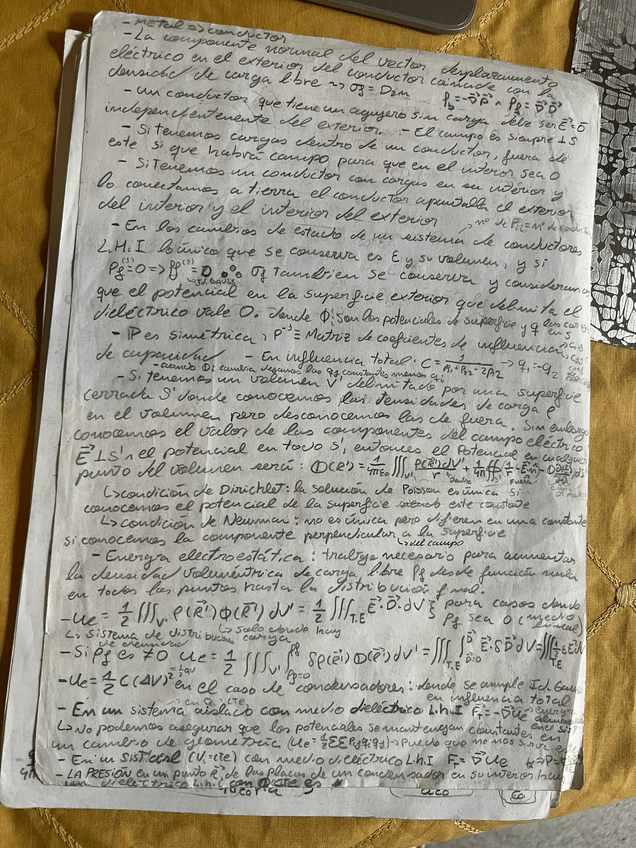 - metal => conductor
- La componente normal del vector desplazamiento
eléctrico en el exterior del conductor coincide con la
densidad de carga libre ~> σf = Dsn ρb = -∇·P ^ ρf = ∇·D
- Un conductor que tiene un agujero sin carga debe ser E = 0
independientemente del exterior. - El campo es siempre ⊥ S
- Si tenemos cargas dentro de un conductor, fuera de
este si que habrá campo para que en el interior sea 0
- Si tenemos un conductor con cargas en su interior y
lo conectamos a tierra el conductor apantalla el exterior
del interior y el interior del exterior
- En los cambios de estado de un sistema de conductores
L.H.I lo único que se conserva es ε y su volumen, y si
ρf = 0 => ρf = 0 σf También se conserva y consideramos
que el potencial en la superficie exterior que delimita el
dieléctrico vale 0. donde Φi son los potenciales de superficie y q las cargas
- P es simétrica, P⁻¹ ≡ Matriz de coeficientes de influencia
de capacidad - En influencia total: C = 1/(P11+P22-2P12) -> q1 = -q2
- Si tenemos un volumen V' delimitado por una superficie
cerrada S' donde conocemos las densidades de carga ρ
en el volumen pero desconocemos las de fuera. Sin embargo
conocemos el valor de las componentes del campo eléctrico
E ⊥ S' ^ el potencial en todo S', entonces el Potencial en cualquier
punto del volumen será:
↳ condición de Dirichlet: la solución de Poisson es única si
conocemos el potencial de la superficie este constante
↳ condición de Newman: no es única pero difieren en una constante
si conocemos la componente perpendicular a la superficie
↳ del campo
- Energía electroestática: trabajo necesario para aumentar
la densidad volumétrica de carga libre ρf desde función nula
en todos los puntos hasta la distribución final.
- Ue = 1/2 ∭V' ρ(r')Φ(r') dV' = 1/2 ∭T.E E·D dV para casos donde
ρf sea 0
↳ sistema de distribución ↳ solo donde hay carga
- Si ρf es ≠ 0 Ue = 1/2 ∭V' ∫ δρ(r') Φ(r') dV' = ∭T.E ∫ E·δD dV
- Ue = 1/2 C(ΔV)² en el caso de condensadores: donde se cumple
en influencia total
- En un sistema aislado con medio dieléctrico L.h.I Fr = -∇Ue
↳ No podemos asegurar que los potenciales se mantengan constantes en
un cambio de geometría
- En un sistema (V = cte) con medio dieléctrico L.h.I Fr = ∇Ue
- LA PRESIÓN en un punto R de las placas de un condensador en su interior
dieléctrico L.h.I con Φ cte es